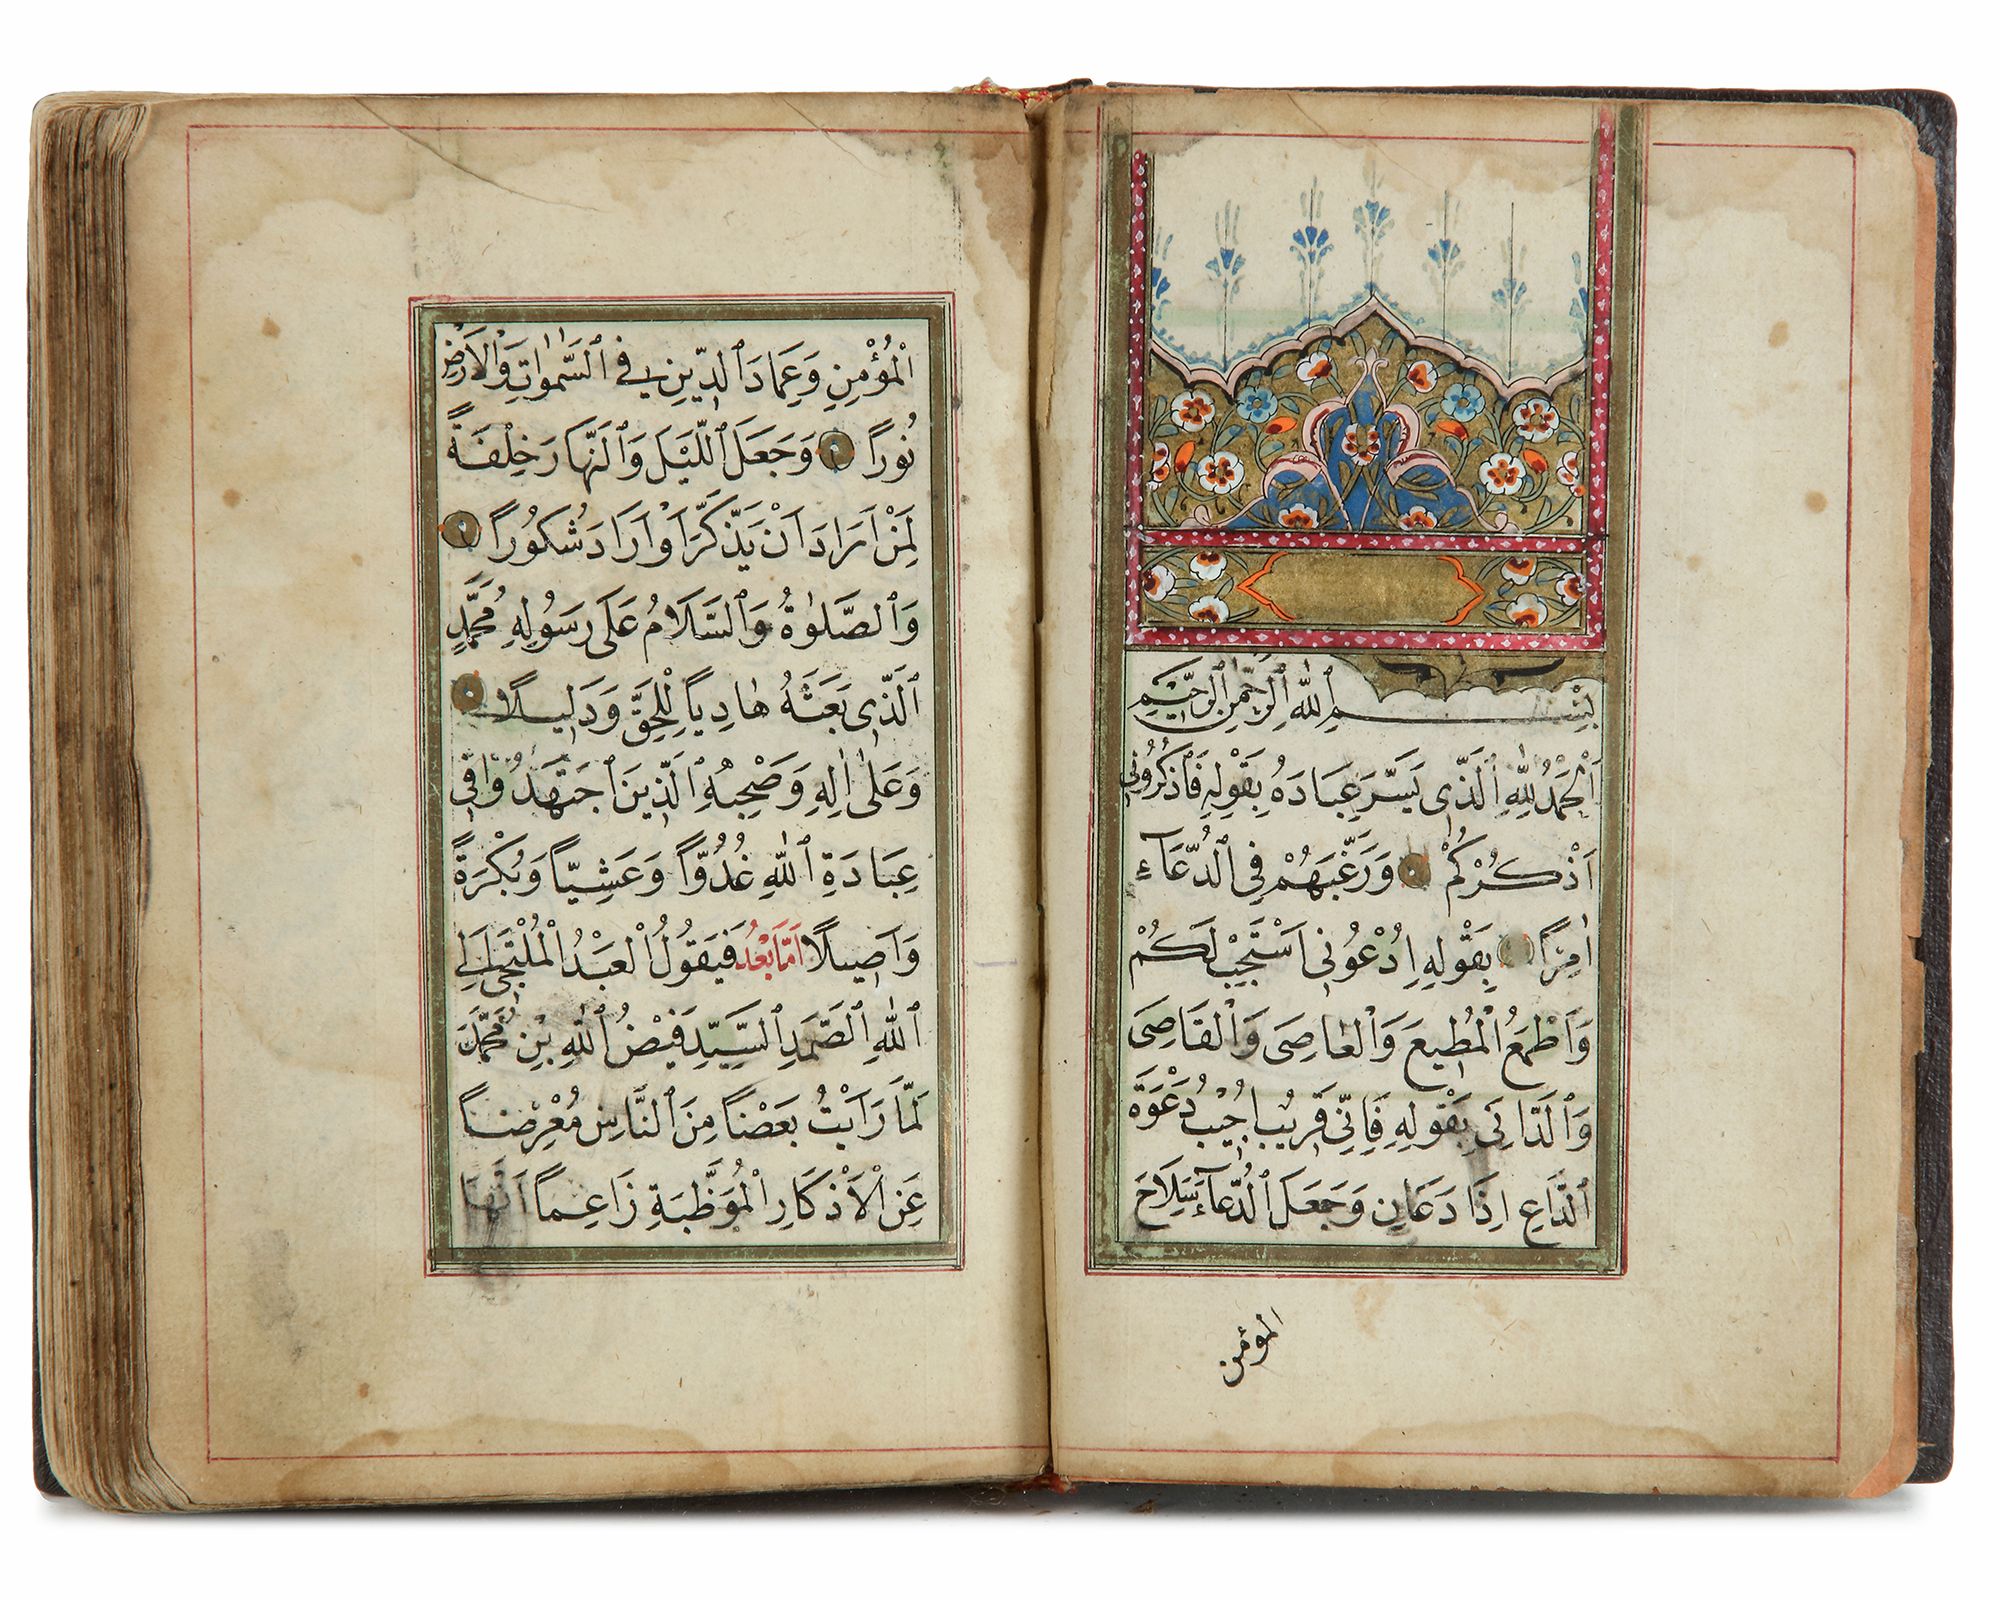 بِسْمِ اللّٰهِ الرَّحْمٰنِ الرَّحِيمِ
اَلْحَمْدُ لِلّٰهِ الَّذِى يَسَّرَ عِبَادَهُ بِقَوْلِهِ فَاذْكُرُونِى
اَذْكُرْكُمْ وَرَغَّبَهُمْ فِى الدُّعَآءِ
اٰمِرًا بِقَوْلِهِ اِدْعُونِى اَسْتَجِبْ لَكُمْ
وَاَطْمَعُ الْمُطِيعَ وَالْعَاصِىَ وَالْقَاصِىَ
وَالدَّانِىَ بِقَوْلِهِ فَاِنِّى قَرِيبٌ اُجِيبُ دَعْوَةَ
الدَّاعِ اِذَا دَعَانِ وَجَعَلَ الدُّعَآءَ سِلَاحَ
المؤمن
الْمُؤْمِنِ وَعِمَادَ الدِّينِ فِى السَّمٰوَاتِ وَالْاَرْضِ
نُورًا وَجَعَلَ اللَّيْلَ وَالنَّهَارَ خِلْفَةً
لِمَنْ اَرَادَ اَنْ يَذَّكَّرَ اَوْ اَرَادَ شُكُورًا
وَالصَّلٰوةُ وَالسَّلَامُ عَلَى رَسُولِهِ مُحَمَّدٍ
الَّذِى بَعَثَهُ هَادِيًا لِلْحَقِّ وَدَلِيلًا
وَعَلٰى اٰلِهِ وَصَحْبِهِ الَّذِينَ اجْتَهَدُوا فِى
عِبَادَةِ اللّٰهِ غُدُوًّا وَعَشِيًّا وَبُكْرَةً
وَاَصِيلًا اَمَّا بَعْدُ فَيَقُولُ الْعَبْدُ الْمُلْتَجِى اِلَى
اللّٰهِ الصَّمَدِ السَّيِّدِ فَيْضُ اللّٰهِ بْنِ مُحَمَّدٍ
لَمَّا رَاَيْتُ بَعْضًا مِنَ النَّاسِ مُعْرِضًا
عَنِ الْاَذْكَارِ الْمُوَظَّبَةِ زَاعِمًا اَنَّهَا